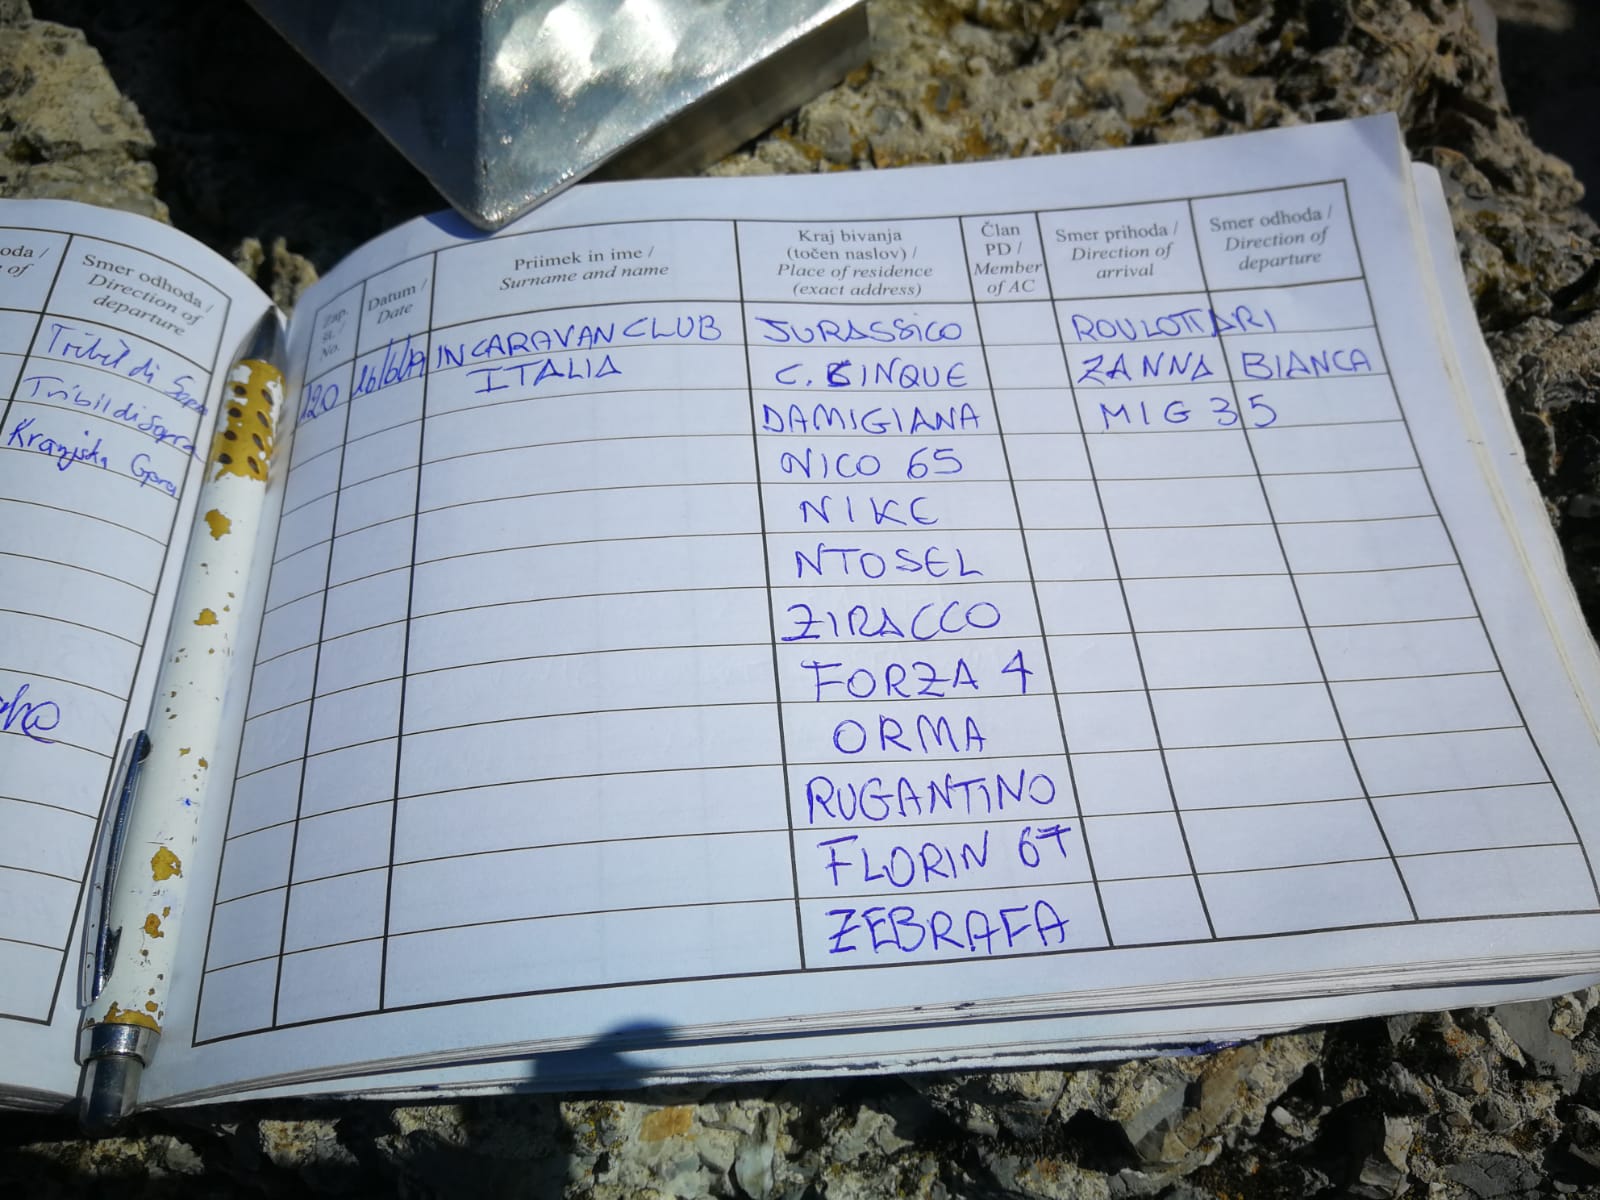 oda /
of
Smer odhoda /
Direction of
departure
Tribil di Sopra
Tribil di Sopra
Kranjska Gora
Zap.
št. /
No.
Datum /
Date
Priimek in ime /
Surname and name
Kraj bivanja
(točen naslov) /
Place of residence
(exact address)
Član
PD /
Member
of AC
Smer prihoda /
Direction of
arrival
Smer odhoda /
Direction of
departure
120 16/6/19 INCARAVAN CLUB JURASSICO ROULOTTARI
ITALIA C. CINQUE ZANNA BIANCA
DAMIGIANA MIG 35
NICO 65
NIKE
NTOSEL
ZIRACCO
FORZA 4
ORMA
RUGANTINO
FLORIN 67
ZEBRAFA